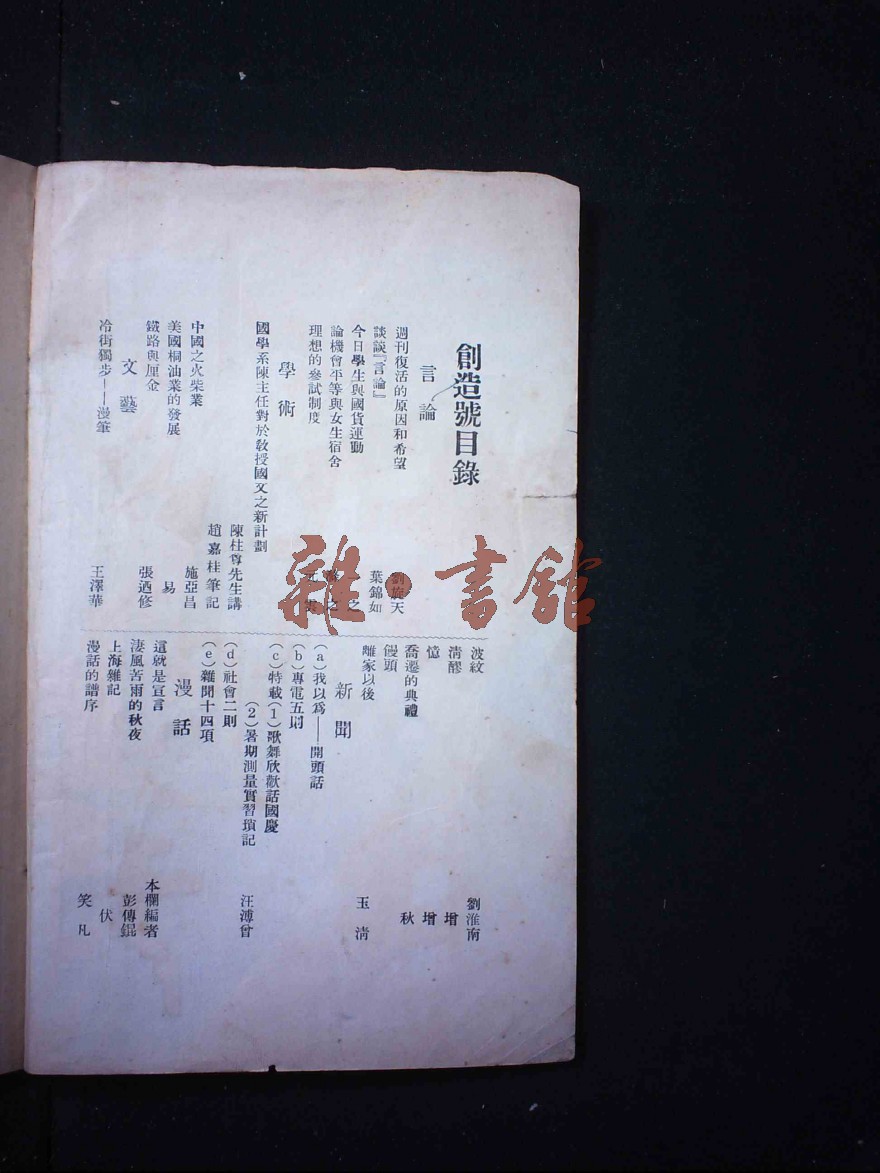 創造號目錄
言論
週刊復活的原因和希望 劉旋天
談談『言論』 葉錦如
今日學生與國貨運動 之
論機會平等與女生宿舍 之
理想的參試制度
學術
國學系陳主任對於敎授國文之新計劃
陳柱尊先生講
趙嘉桂筆記
中國之火柴業 施亞昌
美國桐油業的發展 易
鐵路與厘金 張迺修
文藝
冷街獨步——漫筆 王澤華
波紋 劉淮南
淸醪 增
憶 增
喬遷的典禮 秋
饅頭
離家以後 玉淸
新聞
(a)我以爲——開頭話
(b)專電五則
(c)特載(1)歌舞欣歡話國慶
(2)暑期測量實習瑣記 汪溥曾
(d)社會二則
(e)雜聞十四項
漫話
這就是宣言 本欄編者
淒風苦雨的秋夜 彭傳錕
上海雜記 伏
漫話的譜序 笑凡
雜·書館